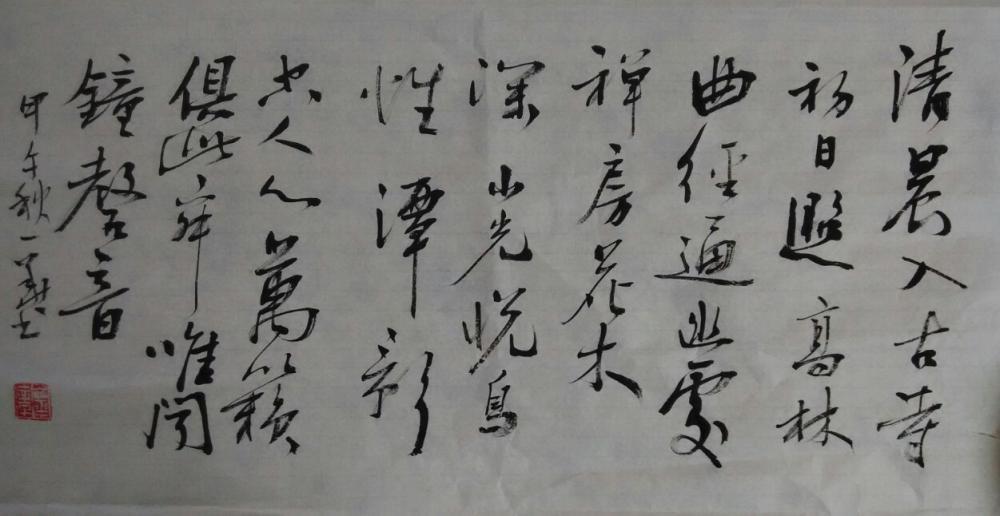 清晨入古寺
初日照高林
曲径通幽處
禅房花木
深山光悦鳥
性潭影
空人心萬籟
俱此寂唯聞
鐘磬音
甲午秋一書